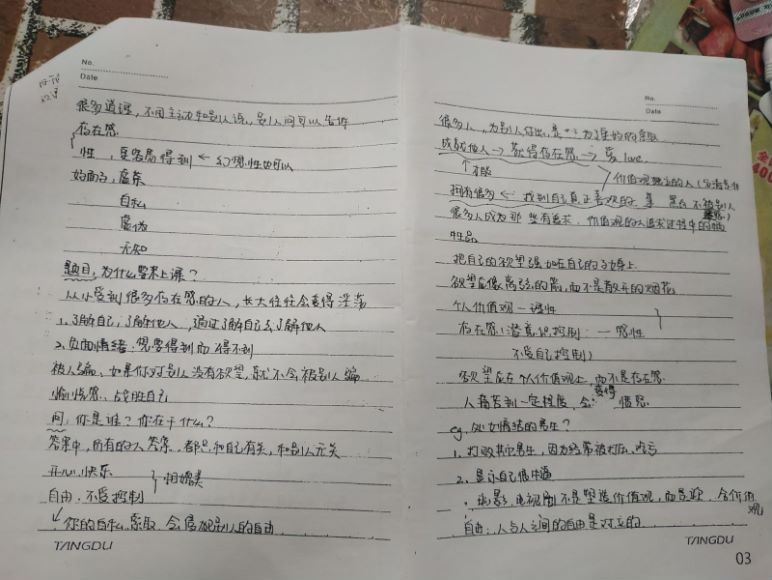 No.
Date
很多道理，不用主动和别人说，别人问可以告诉
存在感
性，更容易得到 ← 幻想，性也可以
好面子，虚荣
自私
虚伪
无知
题目：为什么要来上课？
从小受到很多存在感的人，长大往往会变得淫荡
1、了解自己，了解他人，通过了解自己去了解他人
2、负面情绪：想要得到而得不到
被人骗：如果你对别人没有欲望，就不会被别人骗
愉悦感、战胜自己
问：你是谁？你在干什么？
答案中，所有的人答案，都是和自己有关，和别人无关
开心，快乐
自由：不受控制
相媲美
你的自私、索取，会侵犯别人的自由
TANGDU
No.
Date
很多人，为别人付出，是为了
成就他人 → 获得存在感 → 爱 love
价值观独立的人
拥有很多 ← 找到自己真正喜欢的事
很多人成为那些有追求，价值观的人追求过程中的牺
牲品
把自己的欲望强加在自己的子女身上
欲望应像离弦的箭，而不是散开的烟花
个人价值观 — 理性
存在感（潜意识控制：— 感性
不受自己控制）
欲望应在个人价值观上，而不是存在感
人痛苦到一定程度，会变得愤怒
eg. 处女情结的男生？
1、打败其它男生，因为
2、显示自己很牛逼
电影，电视剧不是塑造价值观，而是
自由：人与人之间的自由是对立的
TANGDU
03